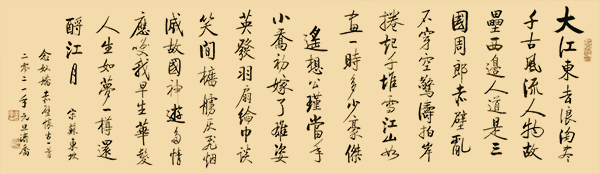 大江東去浪淘尽
千古風流人物故
壘西邊人道是三
國周郎赤壁亂
石穿空驚濤拍岸
捲起千堆雪江山如
畫一時多少豪傑
遙想公瑾當年
小喬初嫁了雄姿
英發羽扇綸巾談
笑間檣櫓灰飛烟
滅故國神遊多情
應笑我早生華髮
人生如夢一樽還
酹江月 宋蘇東坡
念奴嬌赤壁懷古一首
二零二一年元旦